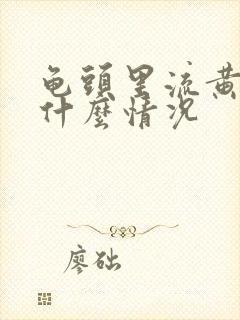 龟頭里流黄
什麼情况
廖础